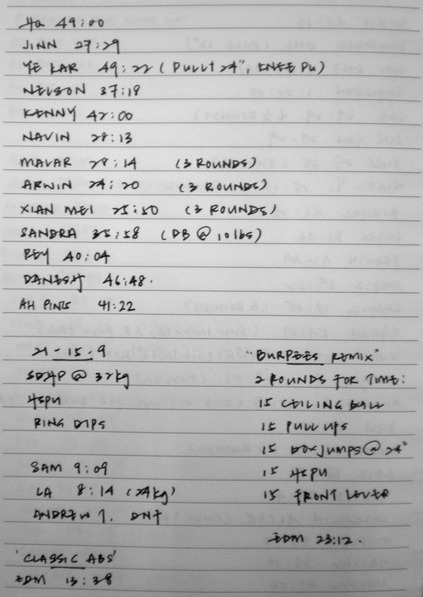 HQ 49:00
JINN 27:29
YE KAR 49:22 (PULLT 24", KNEE PU)
NELSON 37:18
KENNY 42:00
NAVIN 28:13
MALAR 28:14 (3 ROUNDS)
ARWIN 24:20 (3 ROUNDS)
XIAN MEI 25:50 (3 ROUNDS)
SANDRA 35:58 (DB @ 10lbs)
REY 40:04
DANESH 46:48.
AH PING 41:22
21-15-9
SDHP @ 32kg
HSPU
RING DIPS
SAM 9:09
LA 8:14 (24kg)
ANDREW T. DNF
'CLASSIC ABS'
EDM 13:38
"BURPEES REMIX"
2 ROUNDS FOR TIME:
15 CEILING BALL
15 PULL UPS
15 BOXJUMPS@24"
15 HSPU
15 FRONT LEVER
EDM 23:12.